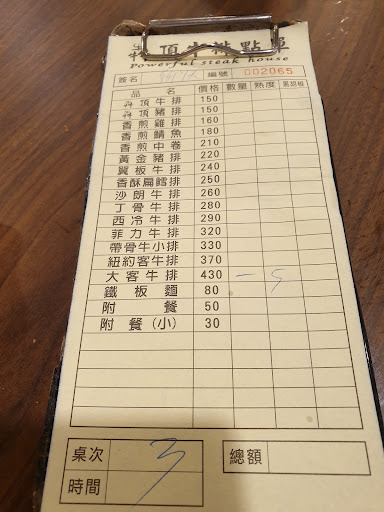 犇頂牛排點單
Powerful steak house
簽名 編號 002065
品名 價格 數量 熟度 黑胡椒
犇頂牛排 150
犇頂豬排 150
香煎雞排 160
香煎鯖魚 180
香煎中卷 210
黃金豬排 220
翼板牛排 240
香酥扁鱈排 250
沙朗牛排 260
丁骨牛排 280
西冷牛排 290
菲力牛排 320
帶骨牛小排 330
紐約客牛排 370
大客牛排 430 一 5
鐵板麵 80
附餐 50
附餐(小) 30
桌次 3 總額
時間